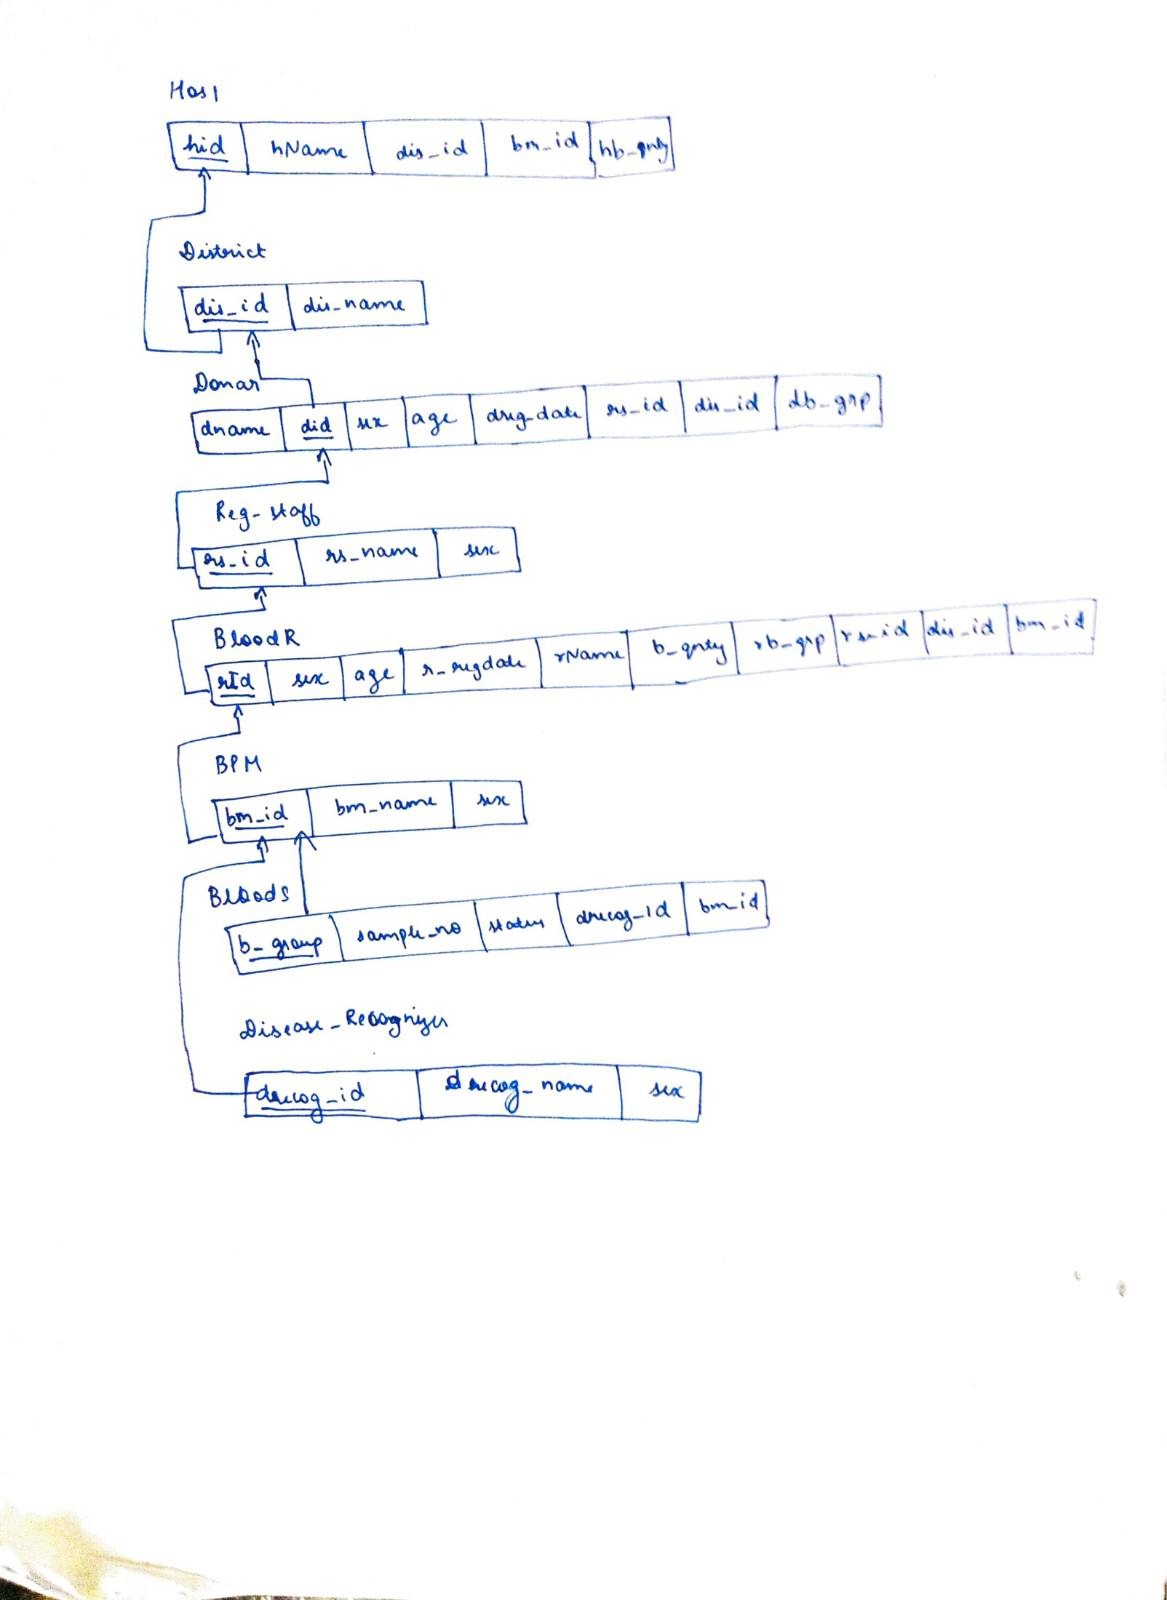 Hos1
hid hName dis_id bm_id hb_qnty
District
dis_id dis_name
Donar
dname did sex age dreg_date rs_id dis_id db_grp
Reg_staff
rs_id rs_name sex
BloodR
rId sex age r_regdate rName b_qnty rb_grp rs_id dis_id bm_id
BPM
bm_id bm_name sex
BloodS
b_group sample_no status drecog_id bm_id
Disease_Recognizer
drecog_id drecog_name sex